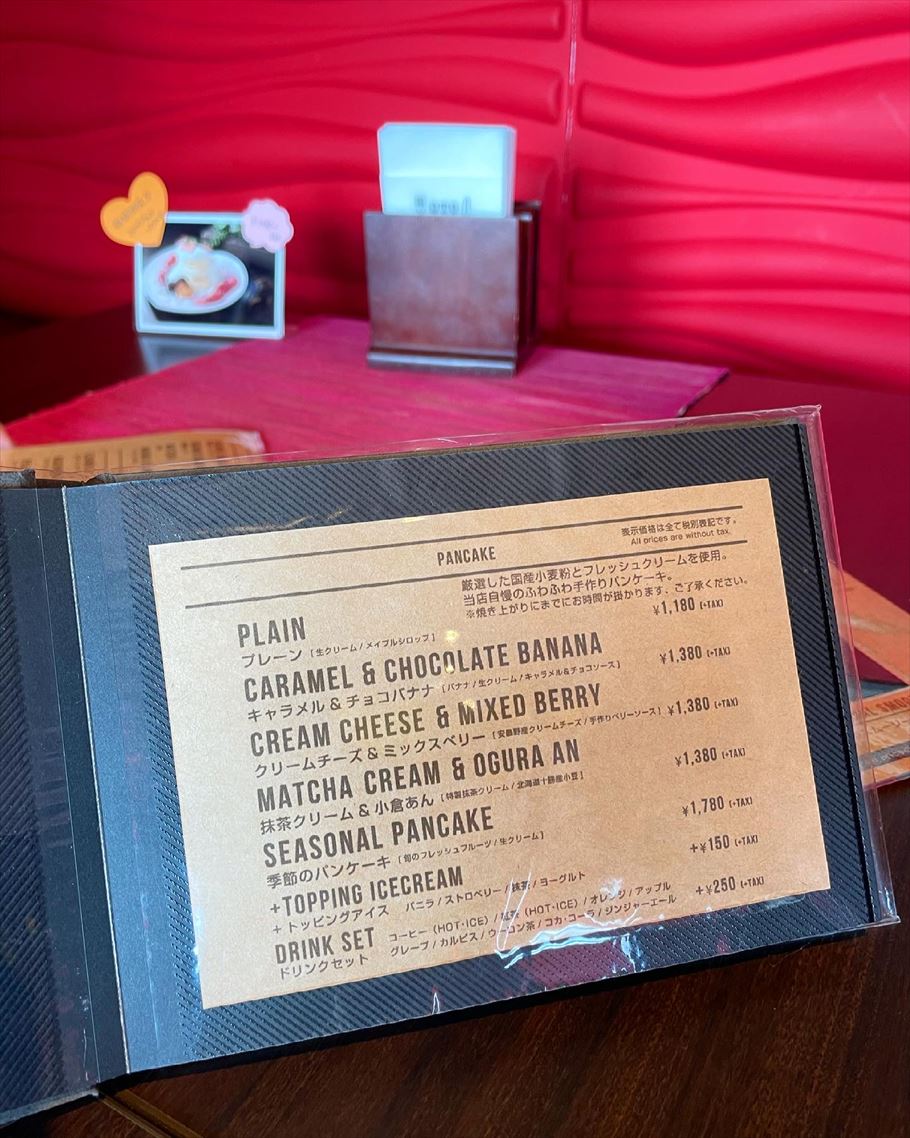 PANCAKE
表示価格は全て税別表記です。
All prices are without tax.
厳選した国産小麦粉とフレッシュクリームを使用。
当店自慢のふわふわ手作りパンケーキ。
※焼き上がりにまでにお時間が掛かります、ご了承ください。
PLAIN ¥1,180 (+TAX)
プレーン [生クリーム/メイプルシロップ]
CARAMEL & CHOCOLATE BANANA ¥1,380 (+TAX)
キャラメル&チョコバナナ [バナナ/生クリーム/キャラメル&チョコソース]
CREAM CHEESE & MIXED BERRY ¥1,380 (+TAX)
クリームチーズ&ミックスベリー [安曇野産クリームチーズ/手作りベリーソース]
MATCHA CREAM & OGURA AN ¥1,380 (+TAX)
抹茶クリーム&小倉あん [特製抹茶クリーム/北海道十勝産小豆]
SEASONAL PANCAKE ¥1,780 (+TAX)
季節のパンケーキ [旬のフレッシュフルーツ/生クリーム]
+TOPPING ICECREAM +¥150 (+TAX)
+トッピングアイス バニラ/ストロベリー/抹茶/ヨーグルト
DRINK SET +¥250 (+TAX)
ドリンクセット コーヒー (HOT・ICE) /紅茶 (HOT・ICE) /オレンジ/アップル
グレープ/カルピス/ウーロン茶/コカ・コーラ/ジンジャーエール